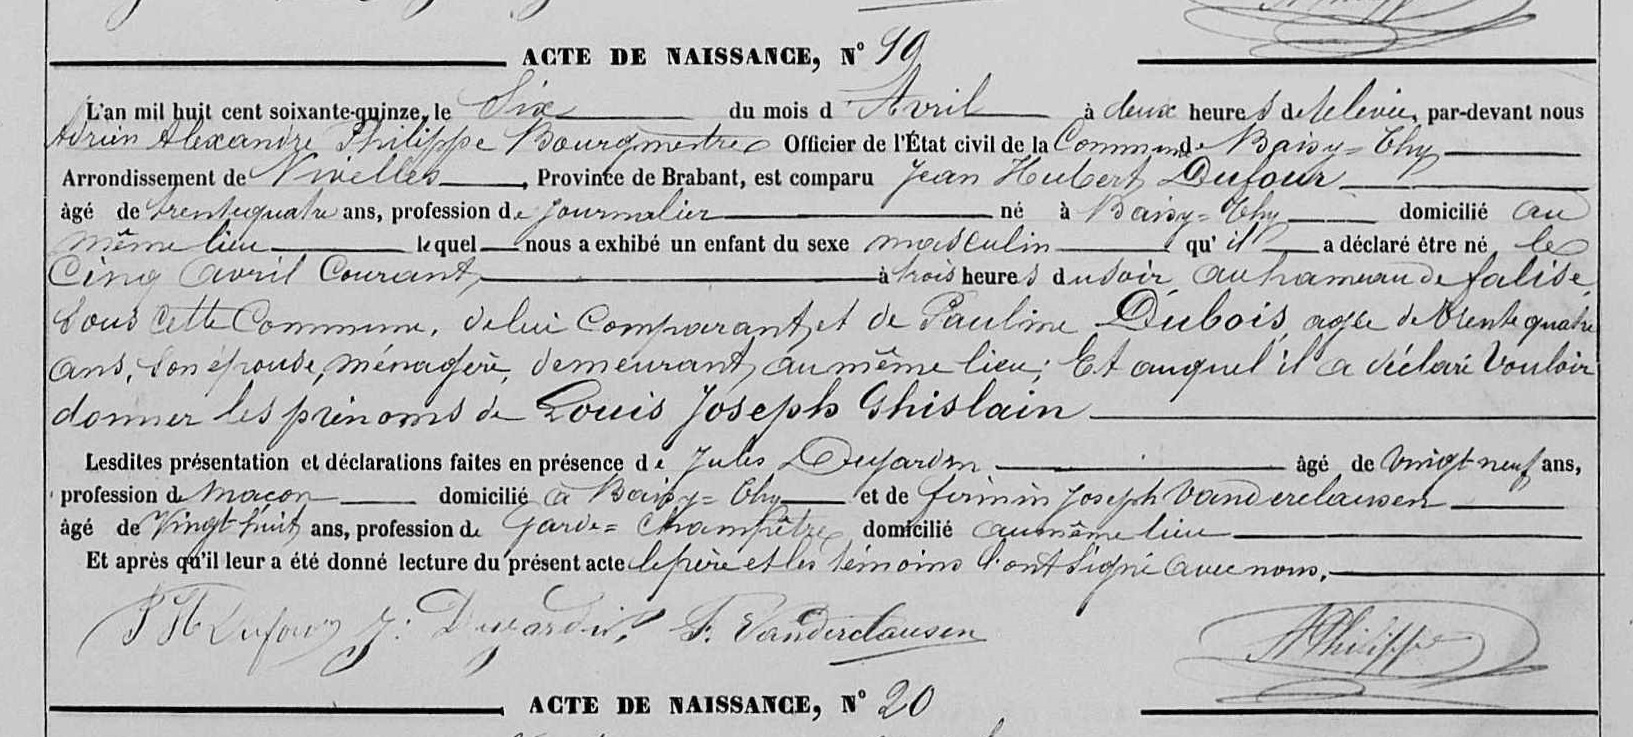 ACTE DE NAISSANCE, N° 19
L'an mil huit cent soixante-quinze, le Six du mois d' Avril à deux heures de relevée, par-devant nous
Adrien Alexandre Philippe Bourgmestre Officier de l'État civil de la Commune de Baisy=Thy
Arrondissement de Nivelles, Province de Brabant, est comparu Jean Hubert Dufour
âgé de trente quatre ans, profession de journalier né à Baisy=Thy domicilié au
même lieu lequel nous a exhibé un enfant du sexe masculin qu' il a déclaré être né le
Cinq avril Courant, à trois heures du soir, au hameau de falise,
Sous cette Commune, de lui Comparant, et de Pauline Dubois, agée de trente quatre
ans, Son épouse, ménagère, demeurant au même lieu; Et auquel il a déclaré Vouloir
donner les prénoms de Louis Joseph Ghislain
Lesdites présentation et déclarations faites en présence de Jules Dujardin âgé de vingt neuf ans,
profession de maçon domicilié à Baisy=Thy et de firmin Joseph Vanderclausen
âgé de Vingt huit ans, profession de Garde=Champêtre domicilié au même lieu
Et après qu'il leur a été donné lecture du présent acte le père et les témoins l'ont Signé avec nous.
J H Dufour J. Dujardin F. Vanderclausen A Philippe
ACTE DE NAISSANCE, N° 20